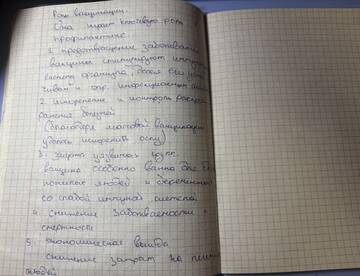 Роль вакцинации.
Она играет ключевую роль
профилактике
1. предотвращение заболевани
вакцины стимулируют иммун
систему организма, делая его уст
чивым к опр. инфекционным
2. искоренение и контроль распрос
ранения болезней
(благодаря массовой вакцинации
удалось искоренить оспу)
3. защита уязвимых групп.
вакцина особенно важна для
пожилых людей и беременных
со слабой имунной системой
4. снижение заболеваемости и
смертности
5. экономическая выгода
снижение затрат на лечен
людей